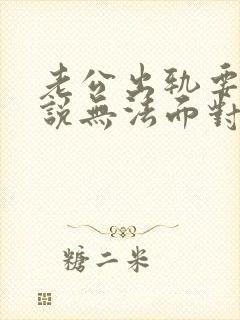 老公出軌要
說無法面對
糖二米